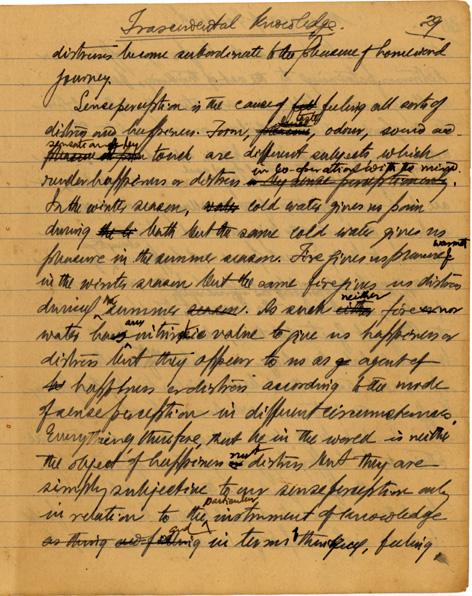 Trascendental Knowledge. 29
distress become subordinate to the pleasure of homeward
journey.
Sense perception is the cause of feeling all sorts of
distress and happiness. Form, taste, odour, sound and
sensation of touch are different subjects which
render happiness or distress in co-operation with the mind.
In the winter season, cold water gives us pain
during bath but the same cold water gives us
pleasure in the summer season. Fire gives us pleasure
in the winter season but the same fire gives us distress
during the summer season. As such neither fire nor
water has any intrinsic value to give us happiness or
distress but they appear to us as agent of
happiness or distress according to the mode
of sense perception in different circumstances.
Everything therefore, that be in the world is neither
the object of happiness nor distress but they are
simply subjective to our sense perception only
in relation to the particular instrument of knowledge
in terms of thinking, feeling